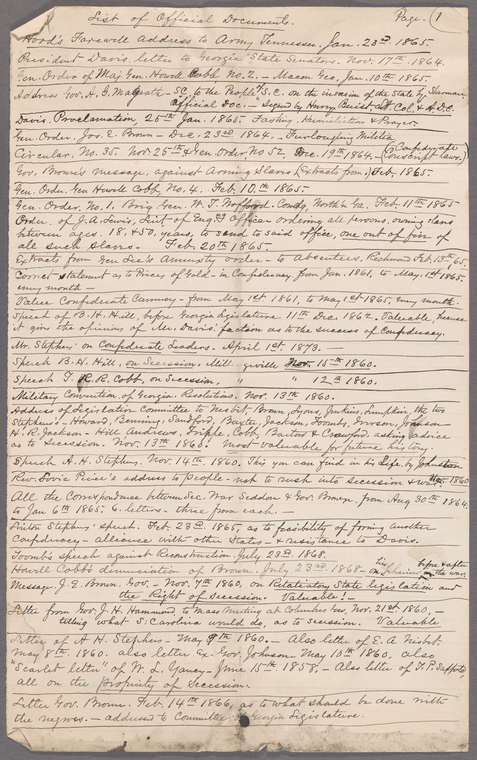 List of Official Documents. Page. (1
Hood's Farewell Address to Army Tennessee, Jan. 23rd 1865.
President Davis, letter to Georgia State Senators. Nov. 17th 1864.
Gen. Order of Maj Gen. Howell Cobb No. 2. - Macon Geo, Jan. 10th 1865.
Address Gov. A. G. Magrath - SC. to the People S.C. on the invasion of the State by Sherman
Official Doc. - "Signed by Henry Buist, Lt. Col. & A.D.C.
Davis, Proclamation, 25th Jan. 1865. Fasting, Humiliation & Prayer.
Gen. Order, Jos. E. Brown - Dec. 23rd 1864. - Furloughing Militia
Circular, No. 35. Nov. 25th & Gen. Order, No 52, Dec. 19th 1864. - (Confederate Conscript laws.)
Gov. Brown's message, against Arming Slaves (Extracts from.) Feb. 1865.
Gen. Order. Gen Howell Cobb, No. 4. Feb. 10th 1865.
Gen. Order, No. 1. Brig Gen. W. T. Wofford. Comdg North Ga. Feb. 11th 1865
Order of J. A. Lewis, Lieut of Eng. ordering all persons, owning slaves
between ages. 18, & 50, years, to send to said office, one out of five of
all such slaves. Feb. 20th 1865.
Extracts from Gen Lee's Amnesty order - to Absentees, Richmond Feb. 13th 65.
Correct statement as to Prices of Gold - in Confederacy, from Jan. 1861, to May. 1st 1865.
every month -
Value Confederate Currency - from May 1st 1861, to May 1st 1865, every month.
Speech of B. H. Hill, before Georgia Legislature 11th Dec. 1862. Valuable, because
it gives the opinions of Mr. Davis' faction as to the success of Confederacy.
Mr. Stephens' on Confederate Leaders. April 1st 1873. -
Speech B. H. Hill, on Secession, Milledgeville Nov. 15th 1860.
Speech T. R. R. Cobb, on Secession. " " 12th 1860.
Military Convention of Georgia. Resolutions. Nov. 13th 1860.
Address of Legislative Committee to Nesbit, Brown, Lyons, Jenkins, Lumpkin, the two
Stephens'. Howard, Benning, Sandford, Baxter, Jackson, Toombs, Iverson, Johnson
H. R. Jackson - Hill Andrews, Tripple, Cobb, Bartow & Crawford, asking advice
as to Secession. Nov. 13th 1860. Most valuable for future history.
Speech A. H. Stephens. Nov. 14th 1860. This you can find in his Life, by Johnston
Rev. Lovic Pierce's address to people - not to rush into secession & war. Nov. 1860
All the Correspondence between Sec. War Seddon & Gov. Brown. from Aug 30th 1864.
to Jan 6th 1865; 6 letters - three from each. -
Linton Stephens' speech. Feb. 22nd 1865, as to feasibility of forming another
Confederacy - alliance with other States - & resistance to Davis.
Toombs speech against Reconstruction. July 23rd 1868.
Howell Cobb's denunciation of Brown. July 23rd 1868 - on his before & after the war
Message J. E. Brown. Gov. - Nov. 7th 1860, on Retaliatory State legislation and
the Right of secession. Valuable! -
Letter from Gov. J. H. Hammond, to Mass Meeting at Columbus Geo, Nov. 21st 1860, -
telling what S. Carolina would do, as to secession. Valuable
Letter of A. H. Stephens - May 9th 1860. - Also letter of E. A. Nisbet.
May 8th 1860. also letter Ex. Gov. Johnson May 10th 1860, also
"Scarlet letter" of W. L. Yancy - June 15th 1858, - Also letter of T. P. Saffold,
all on the propriety of Secession.
Letter Gov. Brown. Feb. 14th 1866, as to what should be done with
the negroes. - addressed to Committee of Georgia Legislature.